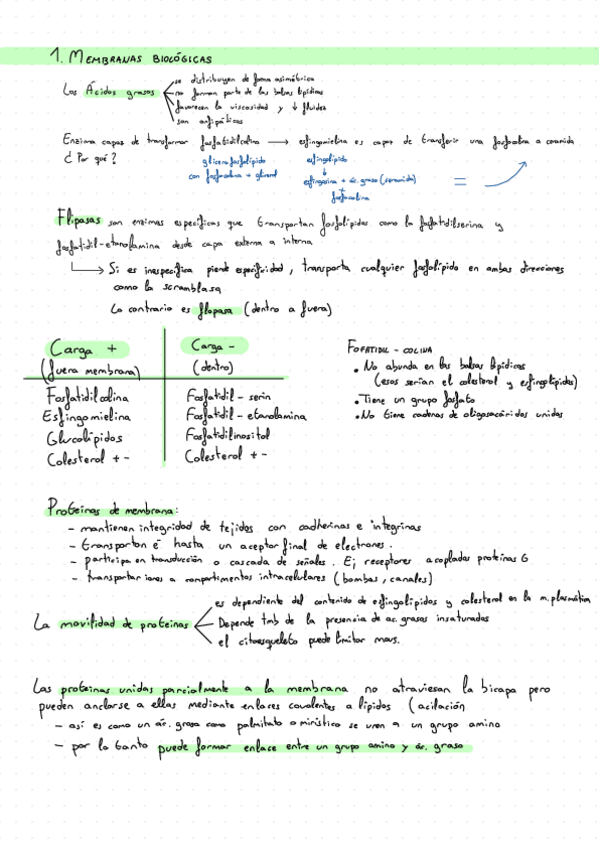 1. MEMBRANAS BIOLÓGICAS
Los Ácidos grasos
se distribuyen de forma asimétrica
no forman parte de las balsas lipídicas
favorecen la viscosidad y ↓ fluidez
son anfipáticos
Enzima capaz de transformar fosfatidilcolina → esfingomielina es capaz de transferir una fosfocolina a ceramida
¿Por qué?
glicerofosfolípido
con fosfocolina + glicerol
esfingolípido
↓
esfingosina + ác. graso (ceramida)
+
fosfocolina
=
Flipasas son enzimas específicas que transportan fosfolípidos como la fosfatidilserina y
fosfatidil-etanolamina desde capa externa a interna
↳ Si es inespecífica pierde especificidad, transporta cualquier fosfolípido en ambas direcciones
como la scramblasa
Lo contrario es flopasa (dentro a fuera)
Carga +
(fuera membrana)
Fosfatidilcolina
Esfingomielina
Glucolípidos
Colesterol + -
Carga -
(dentro)
Fosfatidil - serin
Fosfatidil - etanolamina
Fosfatidilinositol
Colesterol + -
FOFATIDIL - COLINA
• No abunda en las balsas lipídicas
(esos serían el colesterol y esfingolípidos)
• Tiene un grupo fosfato
• No tiene cadenas de oligosacáridos unidas
Proteínas de membrana:
- mantienen integridad de tejidos con cadherinas e integrinas
- transportan e⁻ hasta un aceptor final de electrones.
- participa en transducción o cascada de señales. Ej receptores acoplados proteínas G
- transportar iones a compartimentos intracelulares (bombas, canales)
La movilidad de proteínas
es dependiente del contenido de esfingolípidos y colesterol en la m. plasmática
Depende tmb de la presencia de ac. grasos insaturados
el citoesqueleto puede limitar movs.
Las proteínas unidas parcialmente a la membrana no atraviesan la bicapa pero
pueden anclarse a ellas mediante enlaces covalentes a lípidos (acilación
- así es como un ác. graso como palmitato o mirístico se unen a un grupo amino
- por lo tanto puede formar enlace entre un grupo amino y ác. graso